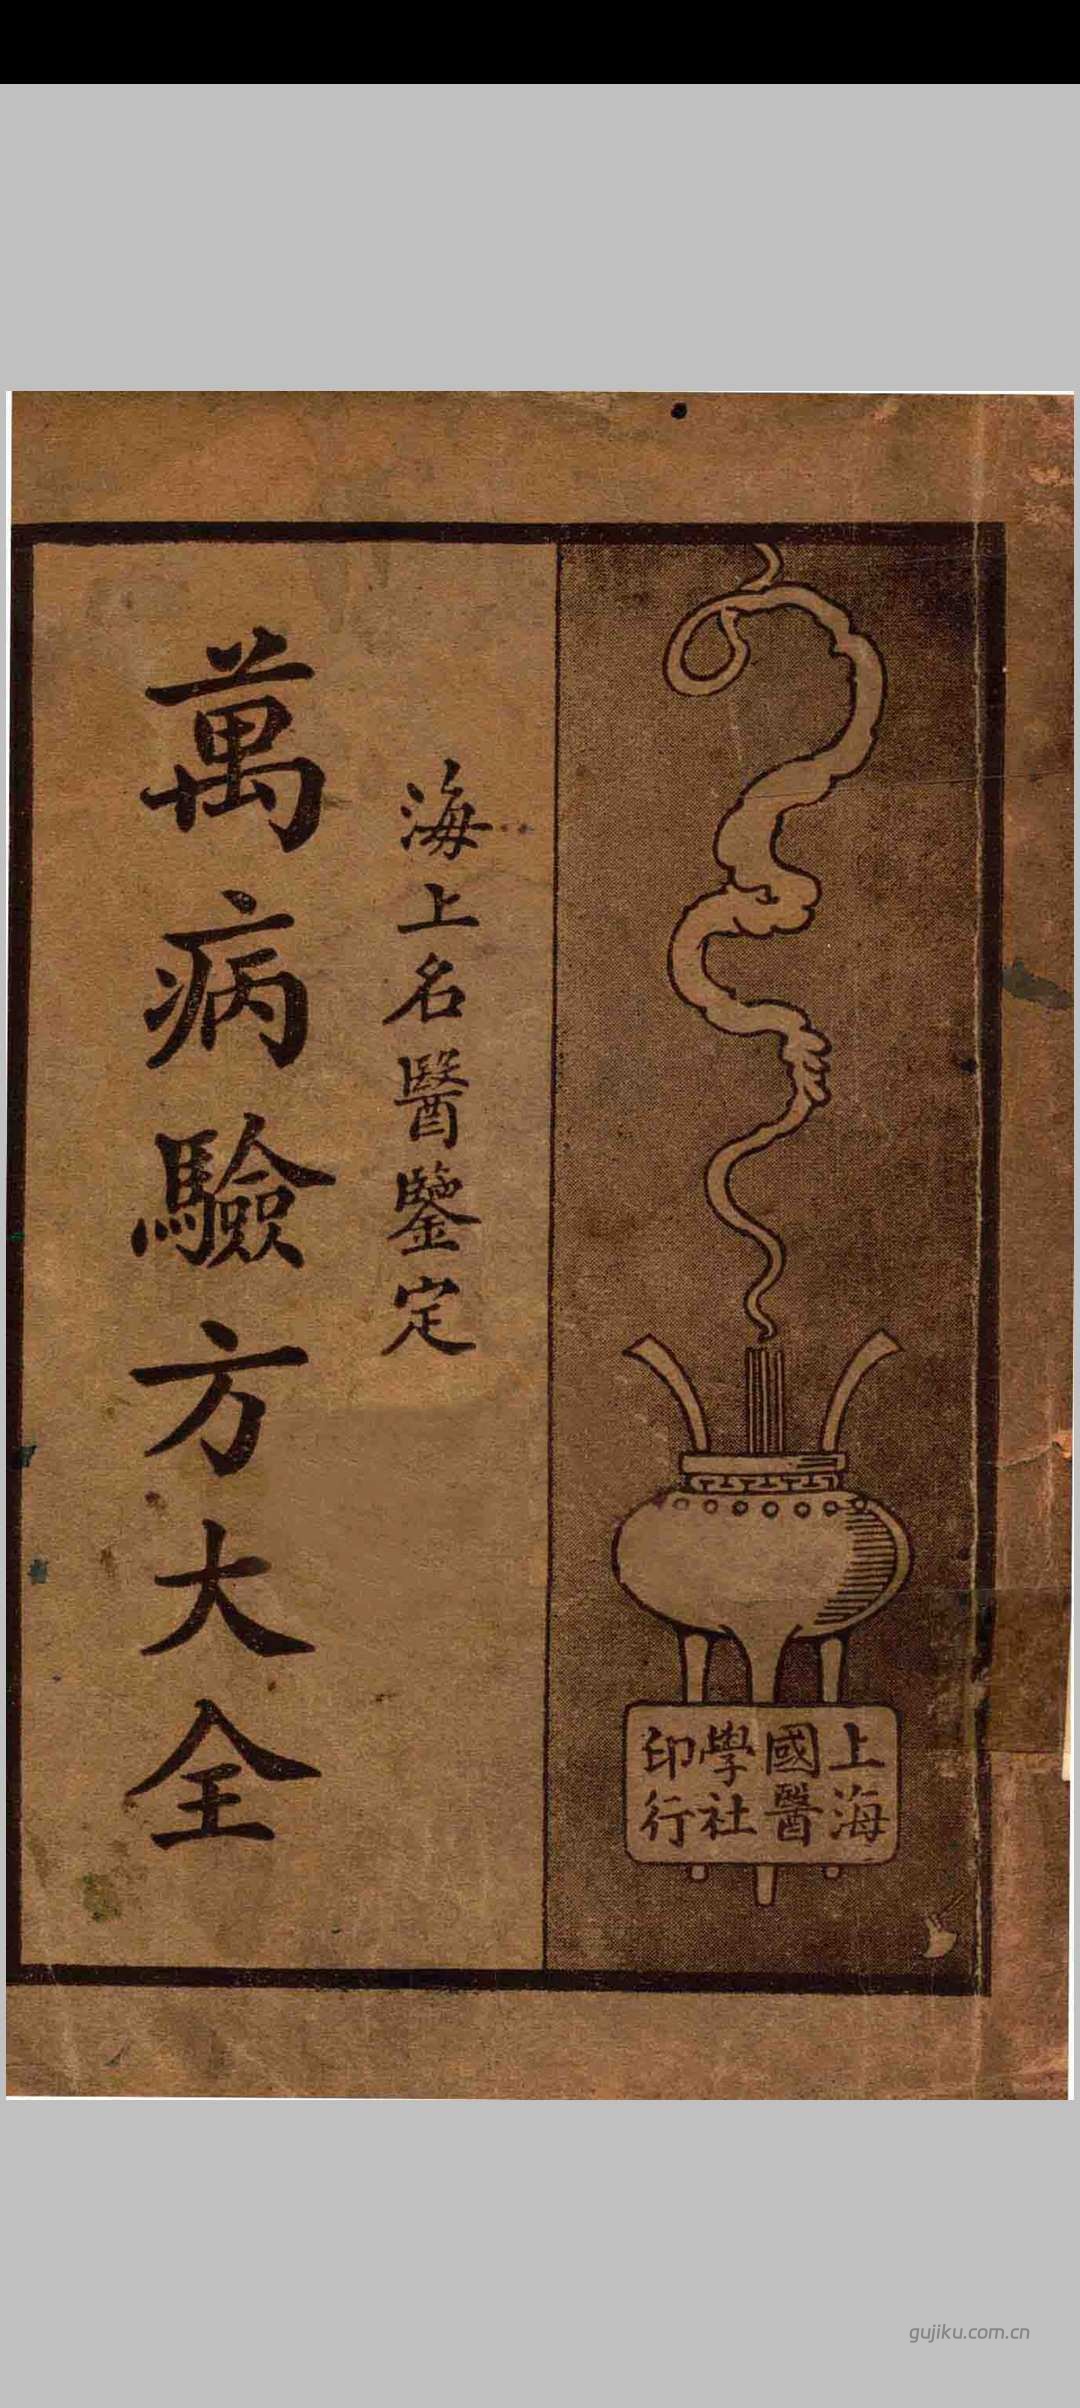 上海
國醫
學社
印行
海上名醫鑒定
萬病驗方大全
gujiku.com.cn